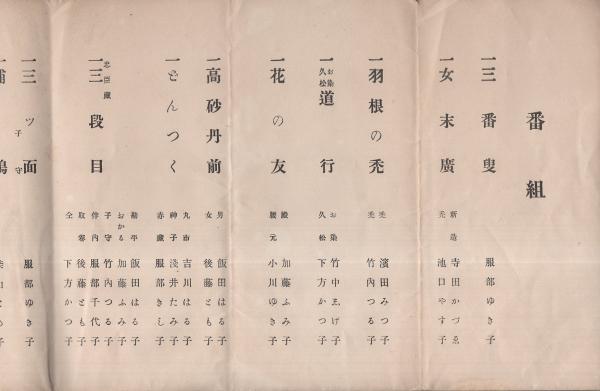 番組
一三番叟
服部ゆき子
一女末廣
新造 寺田かづゑ
禿 池口やす子
一羽根の禿
禿 濱田みつ子
禿 竹内つる子
一お染久松道行
お染 竹中しげ子
久松 下方かつ子
一花の友
加藤ふみ子
腰元 小川ゆき子
一高砂丹前
男 飯田はる子
女 後藤とも子
一どんつく
丸市 吉川はる子
神子 浅井たみ子
赤藏 服部きし子
一忠臣藏三段目
勘平 飯田はる子
おかる 加藤ふみ子
子守 竹内つる子
伴内 服部千代子
取巻 後藤とも子
仝 下方かつ子
一三ッ面子守
服部ゆき子